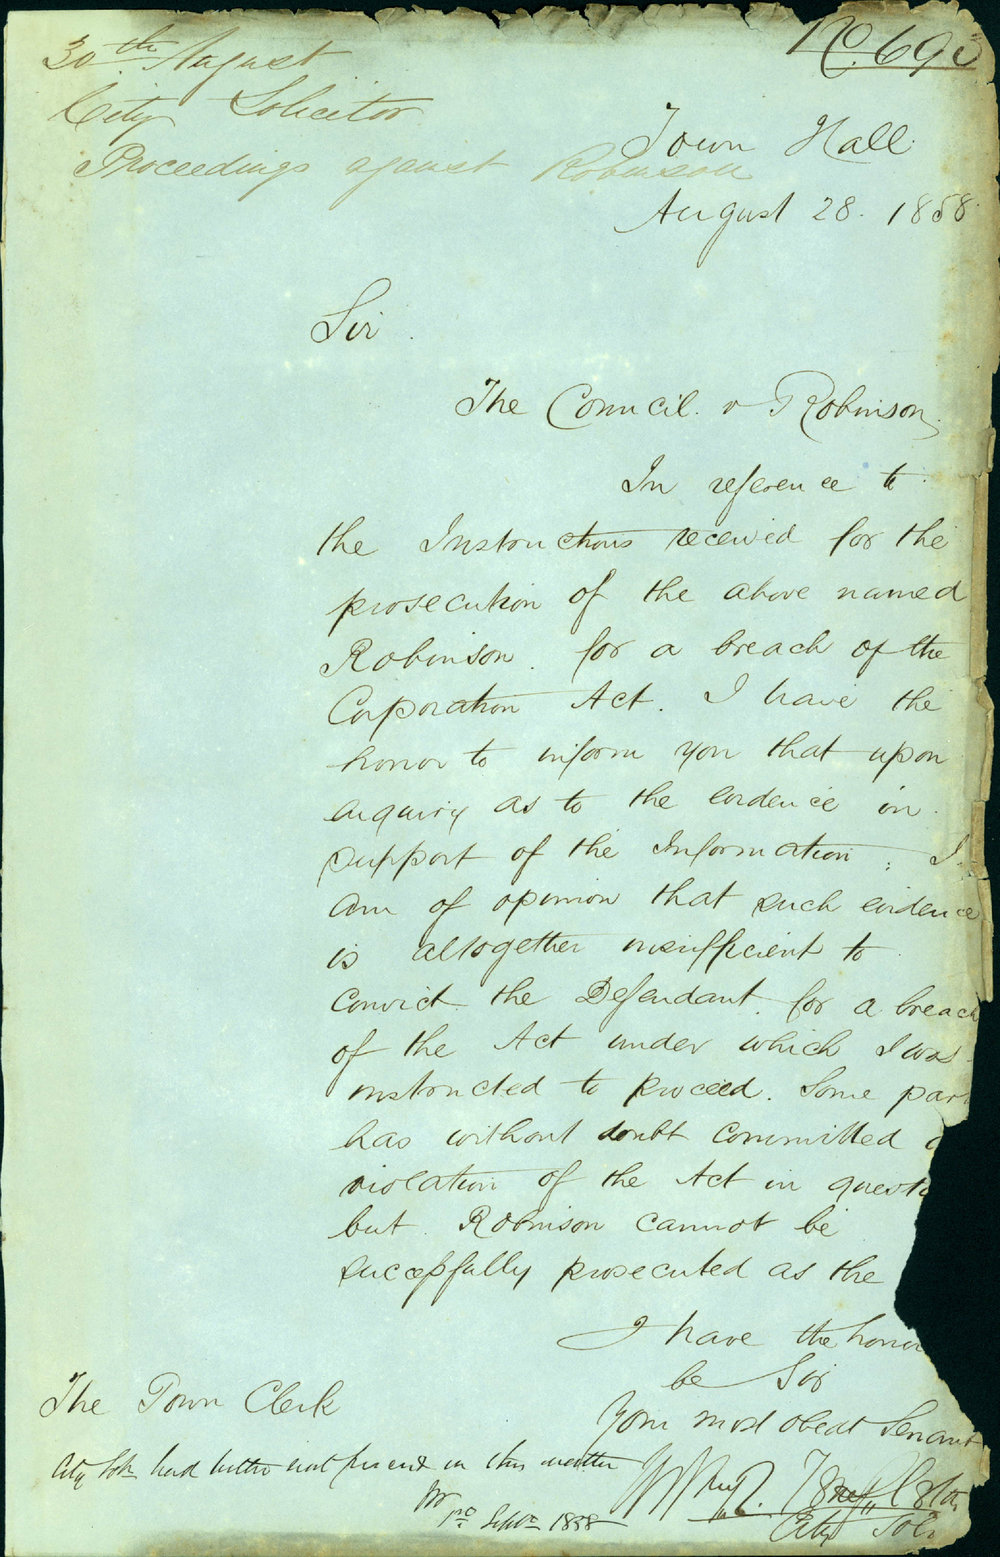 No. 690
30th August
City Solicitor
Proceedings against Robinson
Town Hall
August 28. 1858
Sir
The Council v Robinson
In reference to
the Instructions received for the
prosecution of the above named
Robinson. for a breach of the
Corporation Act. I have the
honor to inform you that upon
enquiry as to the evidence in
support of the Information, I
am of opinion that such evidence
is altogether insufficient to
convict the Defendant for a breach
of the Act under which I was
instructed to proceed. Some par
has without doubt committed
violation of the Act in questi
but Robinson cannot be
successfully prosecuted as the
I have the honor
be Sir
Your most obedt Servant
City Soli
The Town Clerk
City Solr had better not proceed in this matter
Septr 1858